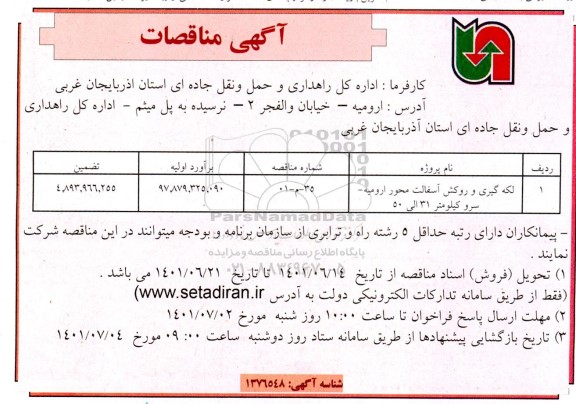 آگهی مناقصات
کارفرما : اداره کل راهداری و حمل ونقل جاده ای استان اذربایجان غربی
آدرس : ارومیه – خیابان والفجر ۲ – نرسیده به پل میثم - اداره کل راهداری
و حمل ونقل جاده ای استان آذربایجان غربی
ردیف نام پروژه شماره مناقصه برآورد اولیه تضمین
۱ لکه گیری و روکش آسفالت محور ارومیه- ۳۵-م-۰۱ ۹۷،۸۷۹،۳۲۵،۰۹۰ ۴،۸۹۳،۹۶۶,۲۵۵
سرو کیلومتر ۳۱ الی ۵۰
ParsNamadData
پایگاه اطلاع رسانی مناقصه و مزایده
- پیمانکاران دارای رتبه حداقل ۵ رشته راه و ترابری از سازمان برنامه و بودجه میتوانند در این مناقصه شرکت
نمایند .
۱) تحویل (فروش) اسناد مناقصه از تاریخ ۱۴۰۱/۰۶/۱۴ تا تاریخ ۱۴۰۱/۰۶/۲۱ می باشد .
(فقط از طریق سامانه تدارکات الکترونیکی دولت به آدرس www.setadiran.ir)
۲) مهلت ارسال پاسخ فراخوان تا ساعت ۱۰:۰۰ روز شنبه مورخ ۱۴۰۱/۰۷/۰۲
۳) تاریخ بازگشایی پیشنهادها از طریق سامانه ستاد روز دوشنبه ساعت ۰۹:۰۰ مورخ ۱۴۰۱/۰۷/۰۴
شناسه آگهی: ۱۳۷۶۵۴۸